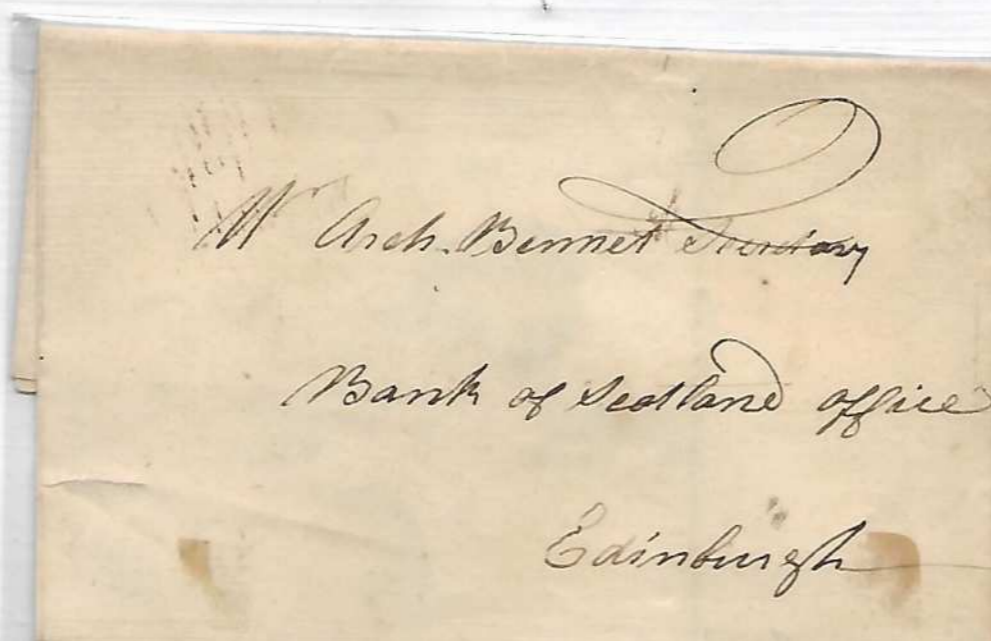 Mr Arch. Bennet Secretary
Bank of Scotland office
Edinburgh